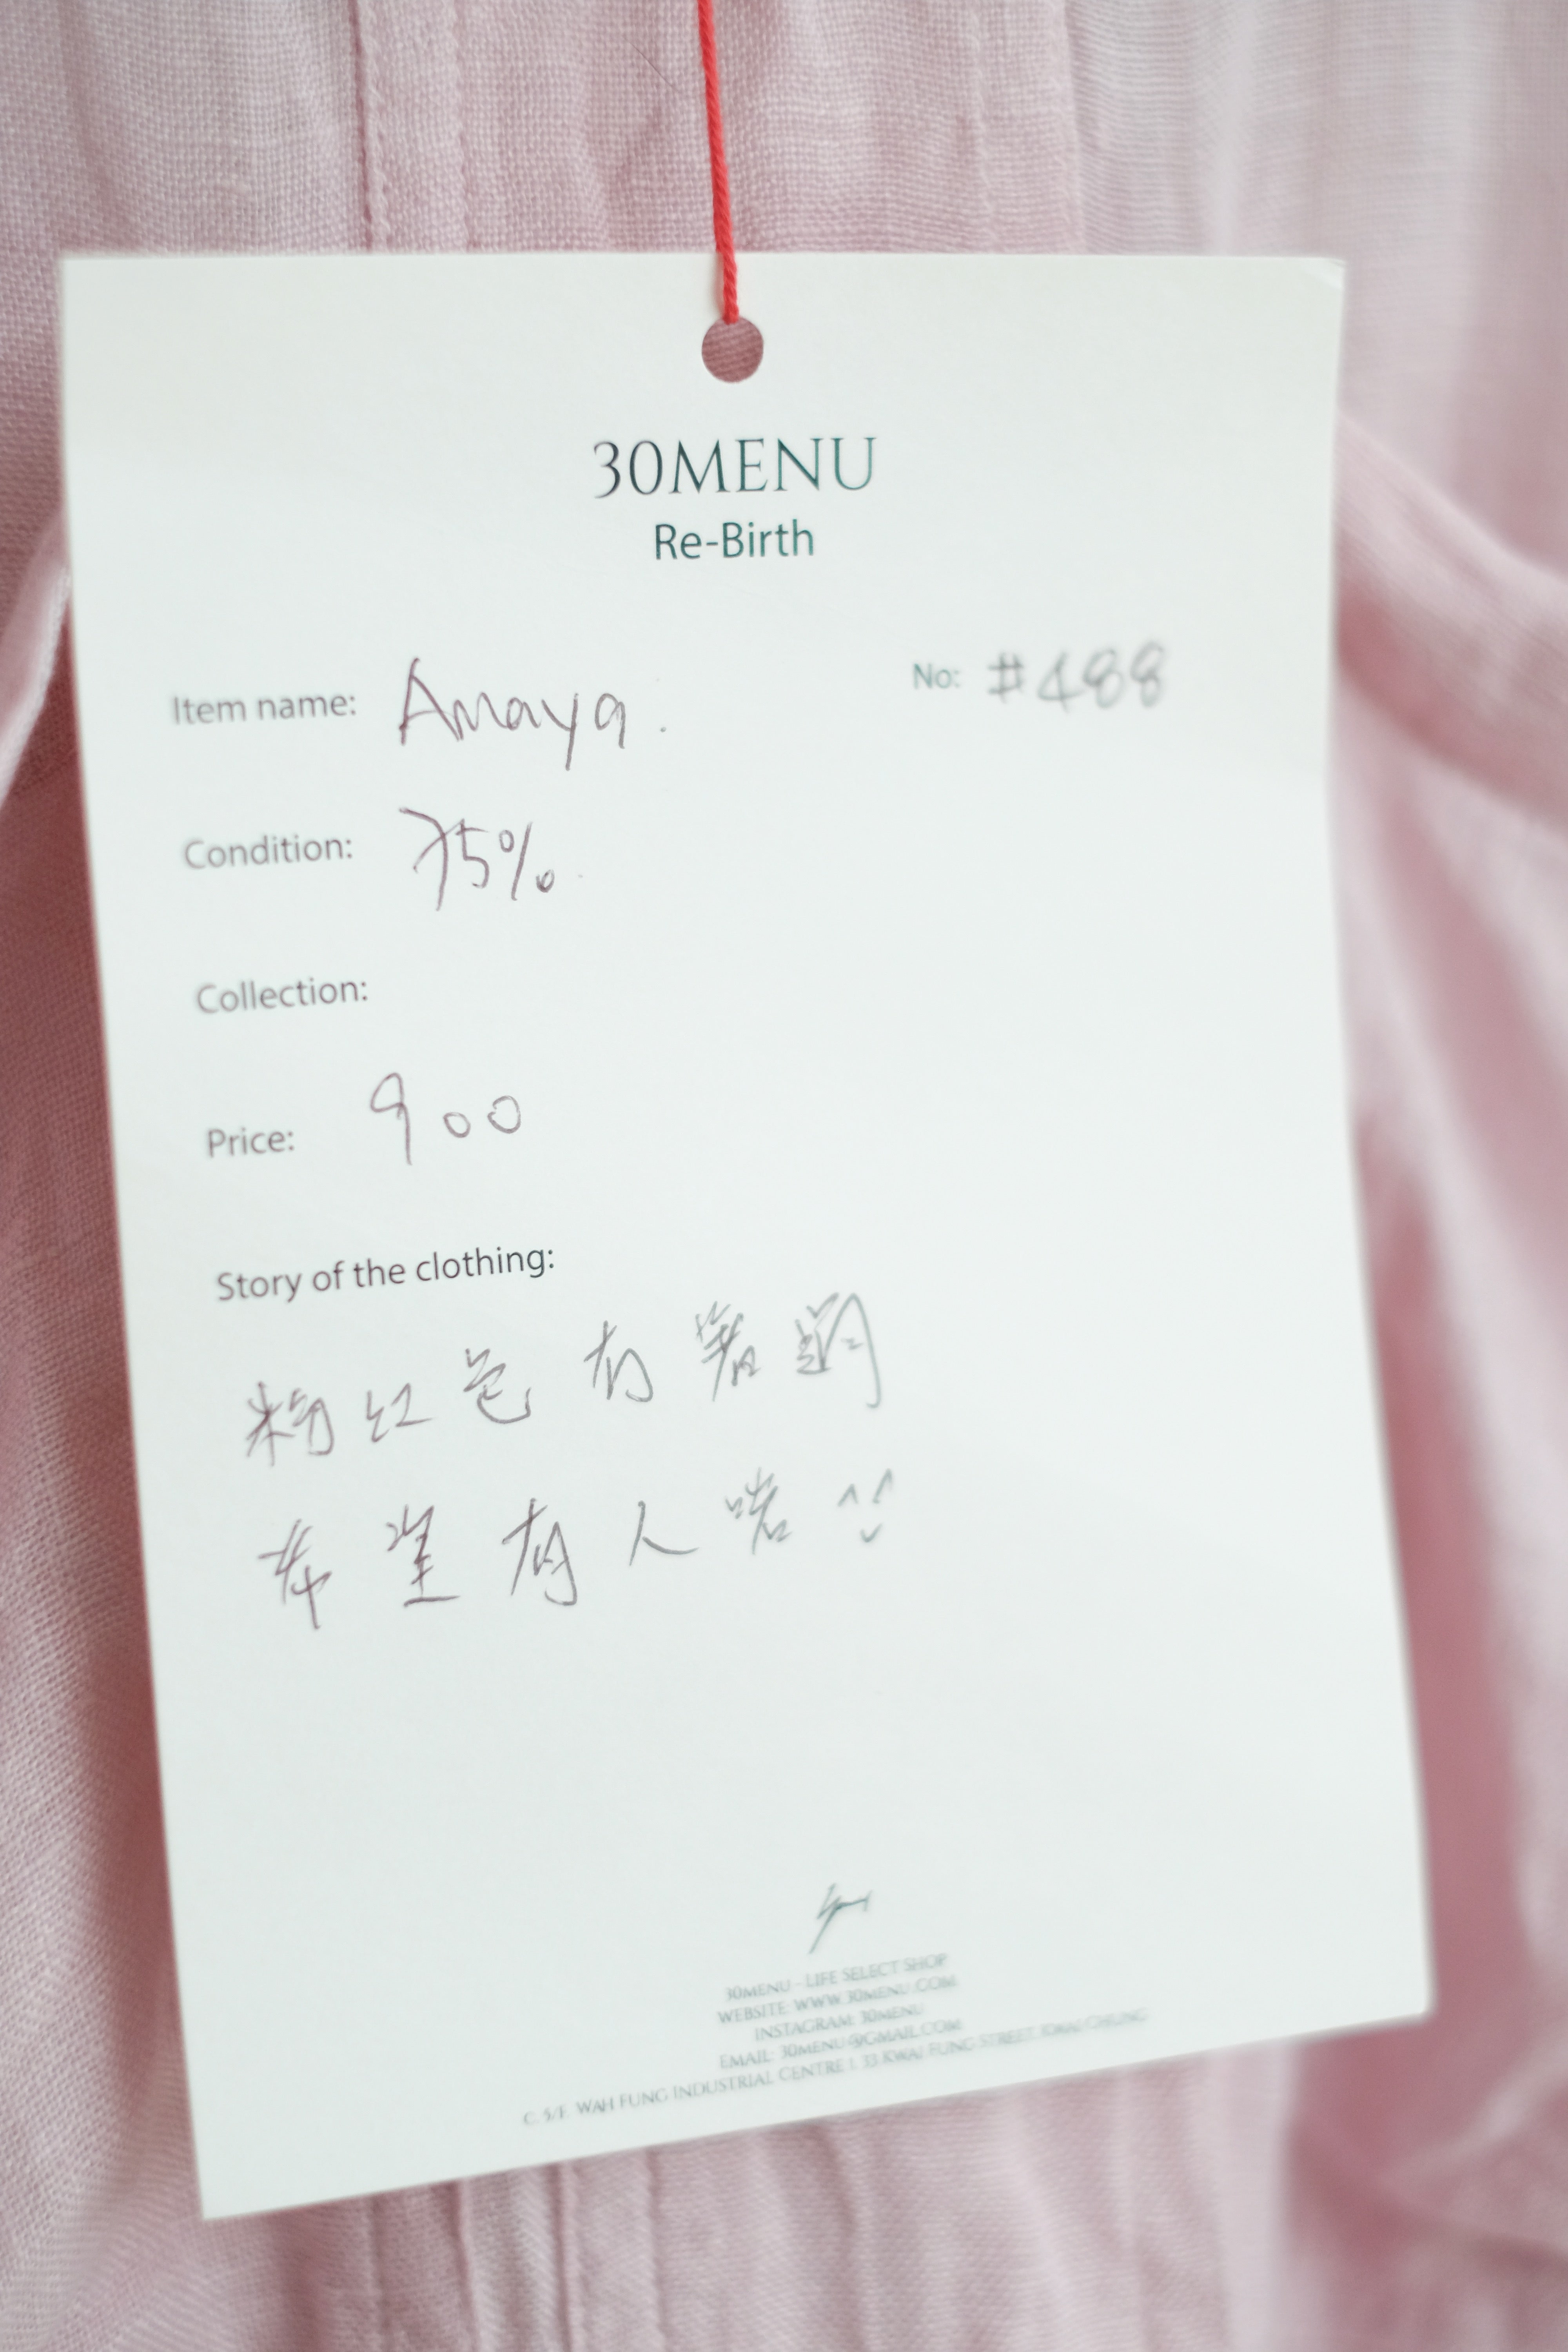 30MENU
Re-Birth
Item name: Amaya.
No: #488
Condition: 75%
Collection:
Price: 900
Story of the clothing:
粉紅色有着
希望有人啱 ^ ^
30MENU - LIFE SELECT SHOP
WEBSITE: WWW.30MENU.COM
INSTAGRAM: 30MENU
EMAIL: 30MENU@GMAIL.COM
C, 5/F. WAH FUNG INDUSTRIAL CENTRE 1, 33 KWAI FUNG STREET, KWAI CHUNG